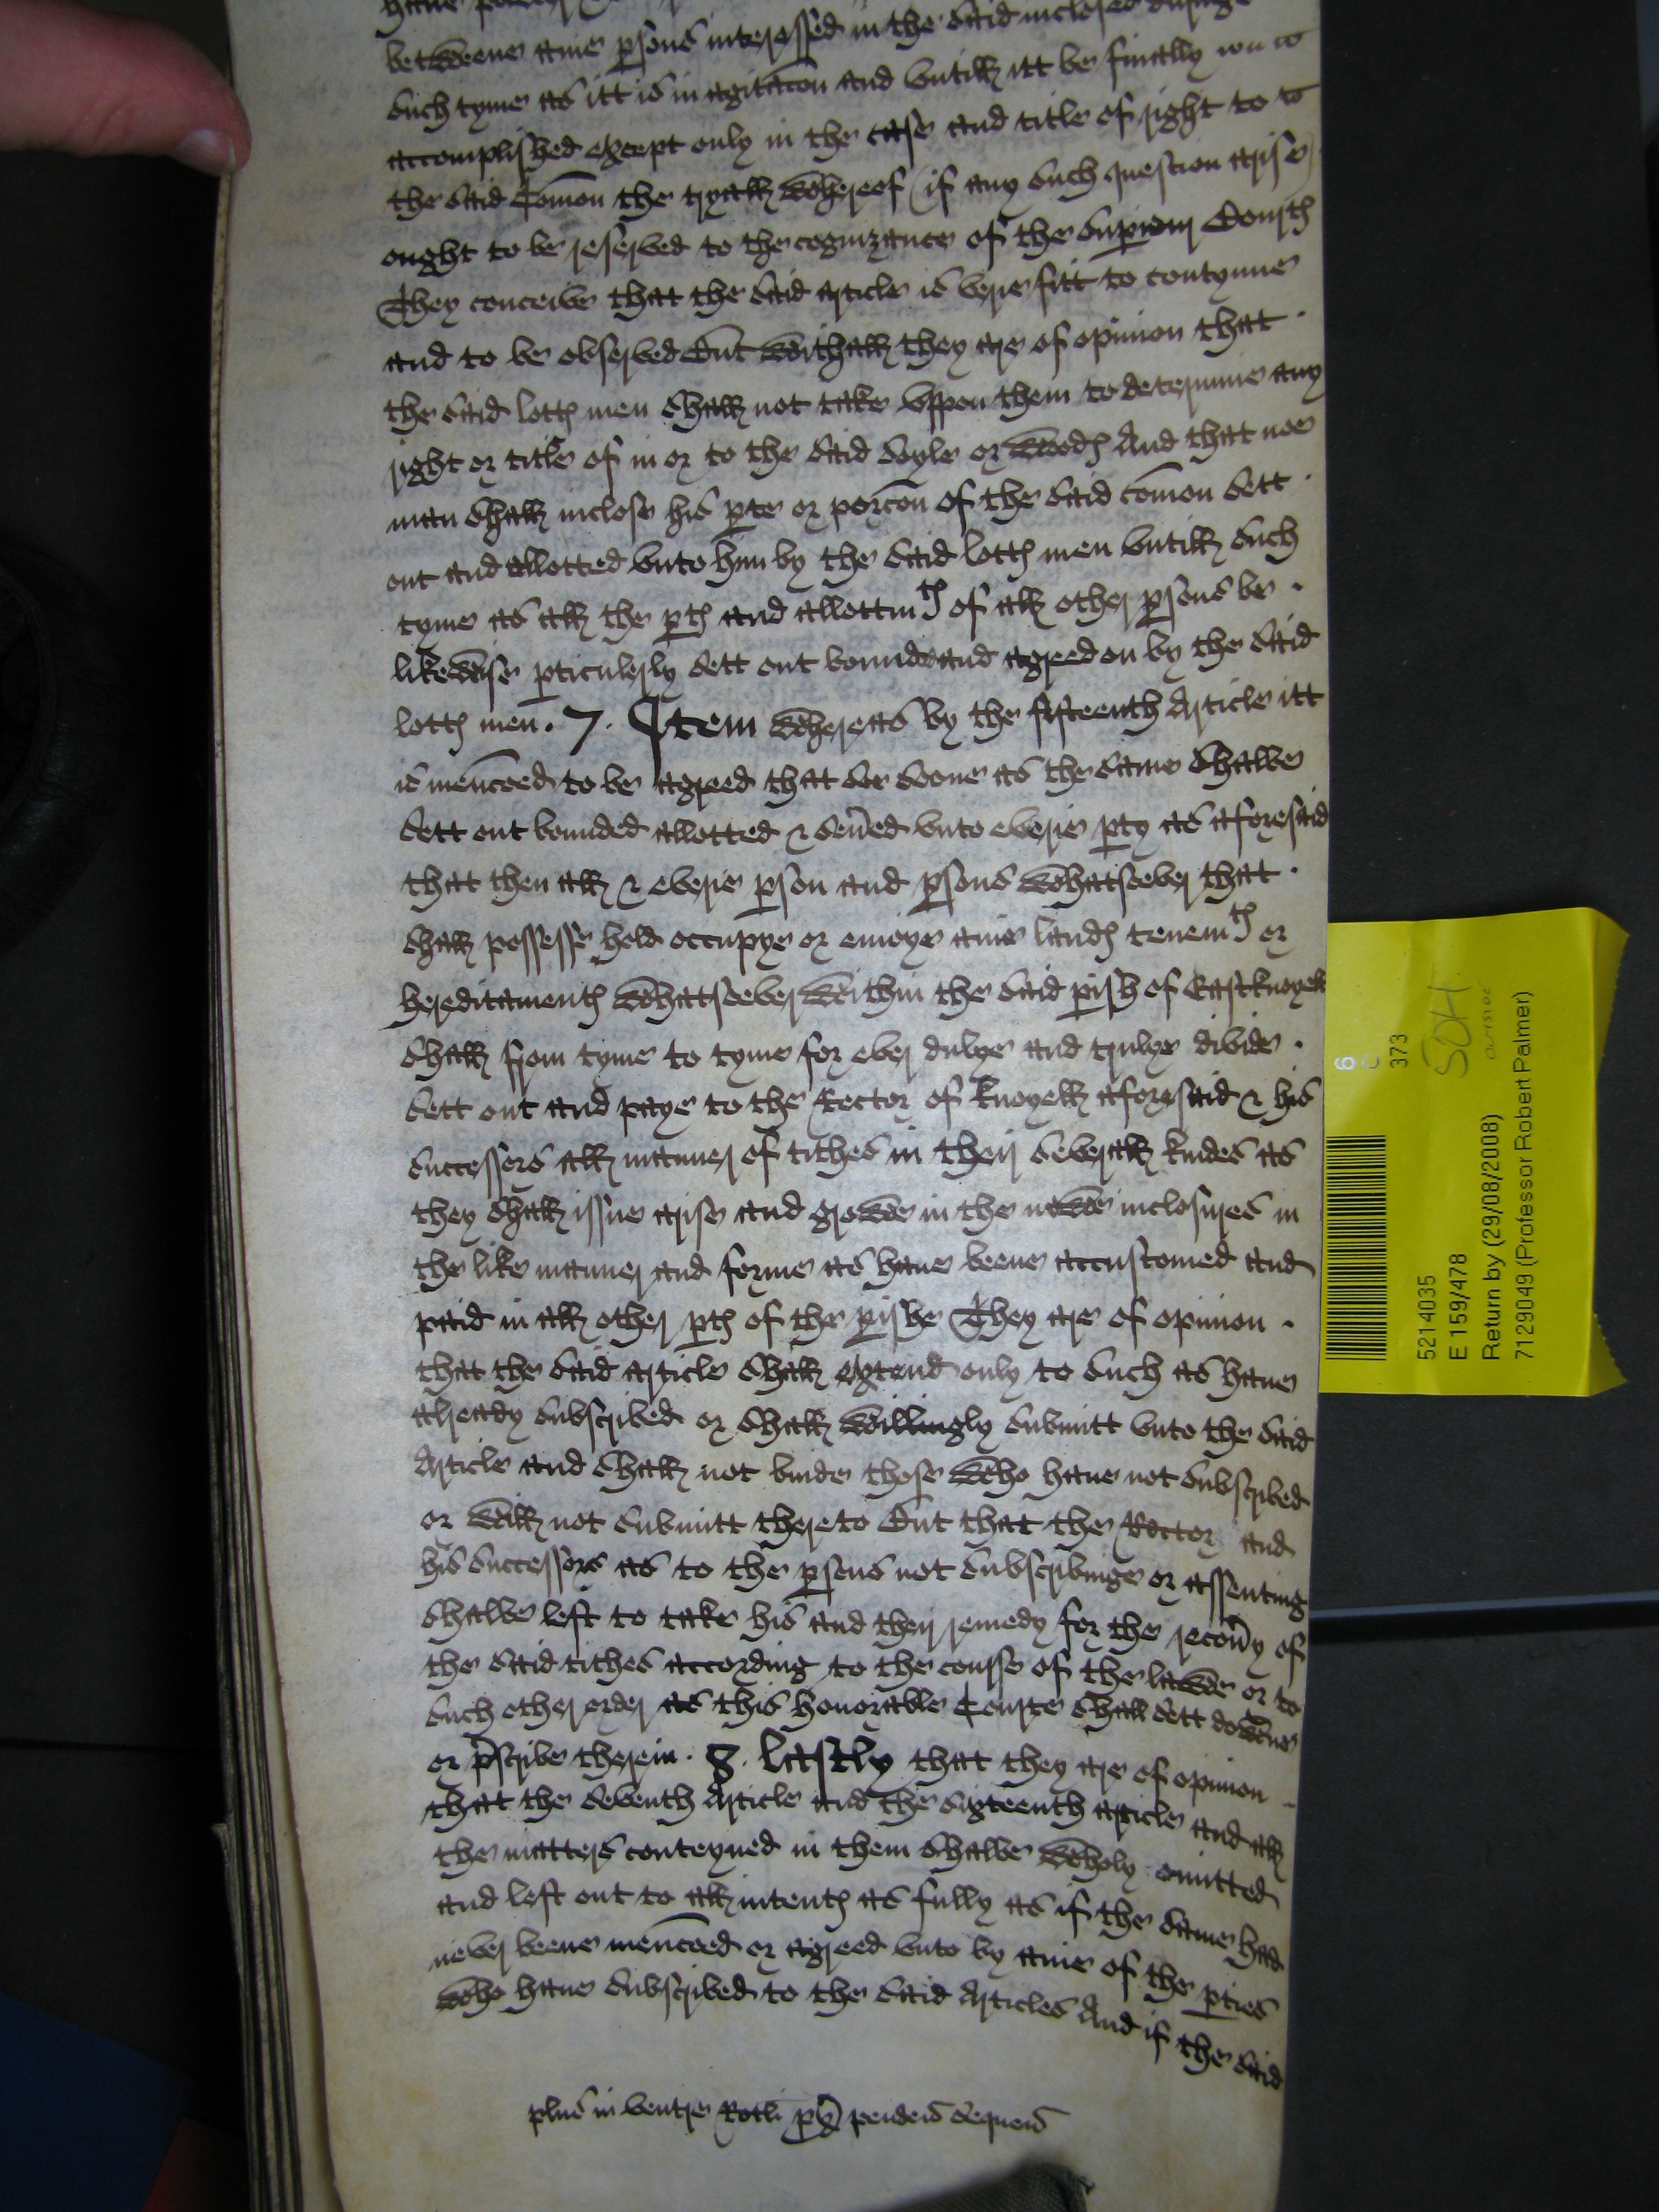 betweene anie psons interessed in the said inclosed
such tyme as itt is in agitacon and untill itt be finally
accomplished except only in the case and title of right to
the said Comon the tryall whereof (if any such question arise)
ought to be reserved to the cognizance of the superior Courts
They conceive that the said article is verie fitt to contynue
and to be observed But withall they are of opinion that
the said lotts men shall not take uppon them to determine any
right or title of in or to the said soyle or woods And that noe
man shall inclose his pte or porcon of the said comon sett
out and allotted unto him by the said lotts men untill such
tyme as all the pts and allottmts of all other psons be
likewise pticulerly sett out bounded and agreed on by the said
lotts men. 7. Item whereas by the fifteenth Article itt
is menconed to be agreed that soe soone as the same shalbe
sett out bounded allotted & sevred unto everie pty as aforesaid
that then all & everie pson and psons whatsoever that
shall possesse hold occupye or enioye anie lands tenemts or
hereditaments whatsoever within the said pish of Eastknoyell
shall from tyme to tyme for ever dulye and trulye divide
sett out and paye to the Rector of Knoyell aforesaid & his
successors all manner of tithes in their severall kindes as
they shall issue arise and growe in the newe inclosures in
the like manner and forme as haue beene accustomed and
paid in all other pts of the pishe They are of opinion
that the said article shall extend only to such as haue
already subscribed or shall willingly submitt unto the said
Article and shall not binde those who haue not subscribed
or will not submitt thereto But that the Rector and
his successors as to the psons not subscribinge or assenting
shalbe left to take his and their remedy for the recovy of
the said tithes according to the course of the lawe or to
such other order as this honorable Courte shall sett downe
or pscribe therein. 8. Lastly that they are of opinion
that the seventh Article and the sixteenth article and all
the matters conteyned in them shalbe wholy omitted
and left out to all intents as fully as if the same had
never beene menconed or agreed unto by anie of the pties
who haue subscribed to the said Articles And if the said
plus in ventre Rotli pd pendens sequens
6
373
SOH
5214035
E 159/478
Return by (29/08/2008)
7129049 (Professor Robert Palmer)